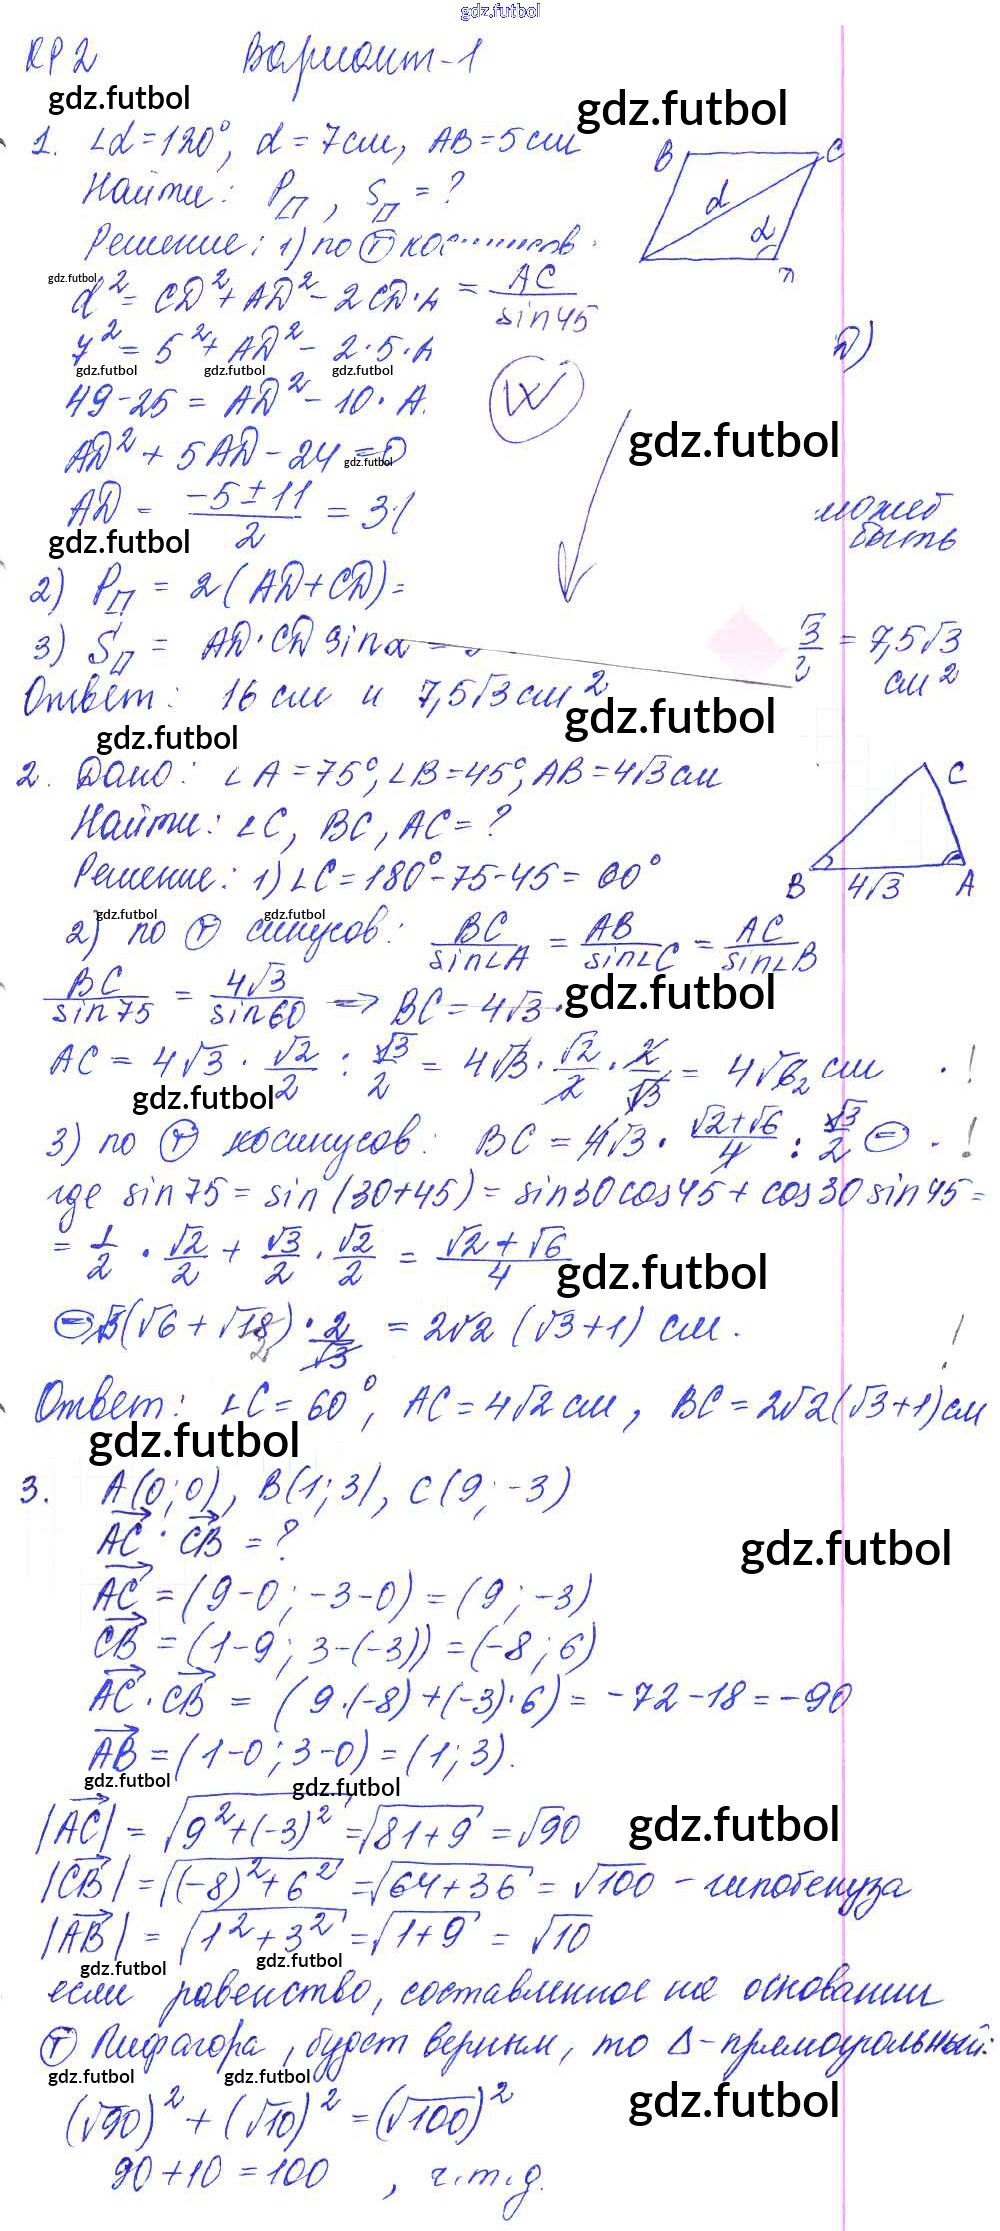 gdz.futbol
КР 2 Вариант-1
gdz.futbol gdz.futbol
1. ∠α = 120°, d = 7 см, AB = 5 см
B C
Найти: Pп, Sп = ?
d α
Решение: 1) по Ⓣ
gdz.futbol
d² = CD² + AD² - 2CD· = AC/sin45
7² = 5² + AD² - 2·5·
D)
gdz.futbol gdz.futbol gdz.futbol
49-25 = AD² - 10·
gdz.futbol
AD² + 5AD - 24 = 0
gdz.futbol
AD = (-5±11)/2 = 3
может
быть
gdz.futbol
2) Pп = 2(AD+CD) =
3) Sп = AD·CD sinα =
√3/2 = 7,5√3
см²
Ответ: 16 см и 7,5√3 см²
gdz.futbol
gdz.futbol
2. Дано: ∠A = 75°, ∠B = 45°, AB = 4√3 см
C
Найти: ∠C, BC, AC = ?
Решение: 1) ∠C = 180°-75-45 = 60°
B 4√3 A
gdz.futbol gdz.futbol
2) по Ⓣ синусов: BC/sin∠A = AB/sin∠C = AC/sin∠B
BC/sin75 = 4√3/sin60 => BC = 4√3 ·
gdz.futbol
AC = 4√3 · √2/2 : √3/2 = 4√3 · √2/2 · 2/√3 = 4√2 см . !
gdz.futbol
3) по Ⓣ косинусов: BC = 4√3 · (√2+√6)/4 : √3/2 ⊜ . !
где sin75 = sin(30+45) = sin30cos45 + cos30sin45 =
= 1/2 · √2/2 + √3/2 · √2/2 = (√2+√6)/4
gdz.futbol
⊜ (√6 + √18) · 2/√3 = 2√2 (√3+1) см. !
Ответ: ∠C = 60°, AC = 4√2 см, BC = 2√2(√3+1) см
gdz.futbol
3. A(0;0), B(1;3), C(9;-3)
AC · CB = ?
gdz.futbol
AC = (9-0; -3-0) = (9; -3)
CB = (1-9; 3-(-3)) = (-8; 6)
AC·CB = (9·(-8)+(-3)·6) = -72-18 = -90
AB = (1-0; 3-0) = (1; 3).
gdz.futbol gdz.futbol
|AC| = √(9²+(-3)²) = √(81+9) = √90
gdz.futbol
|CB| = √((-8)²+6²) = √(64+36) = √100 - гипотенуза
|AB| = √(1²+3²) = √(1+9) = √10
gdz.futbol gdz.futbol
если равенство, составленное на основании
Ⓣ Пифагора, будет верным, то Δ-прямоугольный:
gdz.futbol gdz.futbol
gdz.futbol
(√90)² + (√10)² = (√100)²
90+10 = 100, ч.т.д.